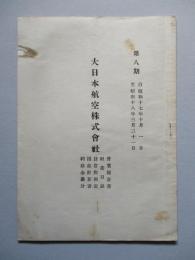 第八期
自昭和十七年十月一日
至昭和十八年三月三十一日
大日本航空株式會社
營業報告書
財產目錄
貸借對照表
損益計算書
利益金處分